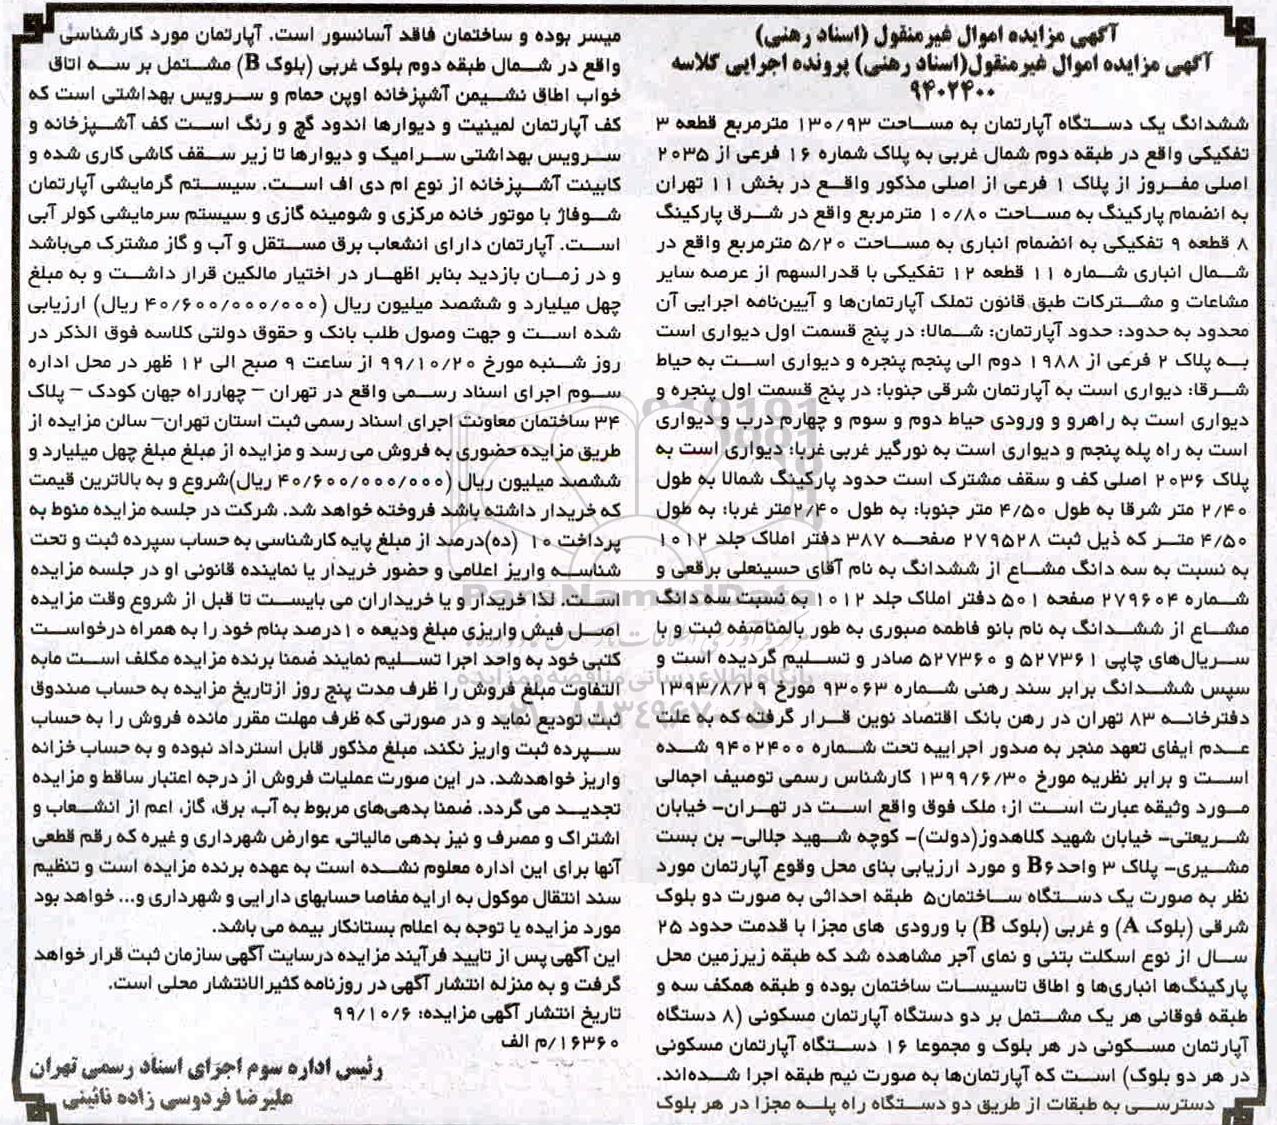 آگهی مزایده اموال غیرمنقول (اسناد رهنی)
آگهی مزایده اموال غیرمنقول(اسناد رهنی) پرونده اجرایی کلاسه
۹۴۰۲۴۰۰
ششدانگ یک دستگاه آپارتمان به مساحت ۱۳۰/۹۳ مترمربع قطعه ۳
تفکیکی واقع در طبقه دوم شمال غربی به پلاک شماره ۱۶ فرعی از ۲۰۳۵
اصلی مفروز از پلاک ۱ فرعی از اصلی مذکور واقع در بخش ۱۱ تهران
به انضمام پارکینگ به مساحت ۱۰/۸۰ مترمربع واقع در شرق پارکینگ
۸ قطعه ۹ تفکیکی به انضمام انباری به مساحت ۵/۲۰ مترمربع واقع در
شمال انباری شماره ۱۱ قطعه ۱۲ تفکیکی با قدرالسهم از عرصه سایر
مشاعات و مشترکات طبق قانون تملک آپارتمان‌ها و آیین‌نامه اجرایی آن
محدود به حدود: حدود آپارتمان: شمالا: در پنج قسمت اول دیواری است
به پلاک ۲ فرعی از ۱۹۸۸ دوم الی پنجم پنجره و دیواری است به حیاط
شرقا: دیواری است به آپارتمان شرقی جنوبا: در پنج قسمت اول پنجره و
دیواری است به راهرو و ورودی حیاط دوم و سوم و چهارم درب و دیواری
است به راه پله پنجم و دیواری است به نورگیر غربی غربا: دیواری است به
پلاک ۲۰۳۶ اصلی کف و سقف مشترک است حدود پارکینگ شمالا به طول
۲/۴۰ متر شرقا به طول ۴/۵۰ متر جنوبا: به طول ۲/۴۰متر غربا: به طول
۴/۵۰ متر که ذیل ثبت ۲۷۹۵۲۸ صفحه ۳۸۷ دفتر املاک جلد ۱۰۱۲
به نسبت به سه دانگ مشاع از ششدانگ به نام آقای حسینعلی برقعی و
شماره ۲۷۹۶۰۴ صفحه ۵۰۱ دفتر املاک جلد ۱۰۱۲ به نسبت سه‌دانگ
مشاع از ششدانگ به نام بانو فاطمه صبوری به طور بالمناصفه ثبت و با
سریال‌های چاپی ۵۲۷۳۶۱ و ۵۲۷۳۶۰ صادر و تسلیم گردیده است و
سپس ششدانگ برابر سند رهنی شماره ۹۳۰۶۳ مورخ ۱۳۹۳/۸/۲۹
دفترخانه ۸۳ تهران در رهن بانک اقتصاد نوین قرار گرفته که به علت
عدم ایفای تعهد منجر به صدور اجراییه تحت شماره ۹۴۰۲۴۰۰ شده
است و برابر نظریه مورخ ۱۳۹۹/۶/۳۰ کارشناس رسمی توصیف اجمالی
مورد وثیقه عبارت است از: ملک فوق واقع است در تهران- خیابان
شریعتی- خیابان شهید کلاهدوز(دولت)- کوچه شهید جلالی- بن بست
مشیری- پلاک ۳ واحدB۶ و مورد ارزیابی بنای محل وقوع آپارتمان مورد
نظر به صورت یک دستگاه ساختمان۵ طبقه احداثی به صورت دو بلوک
شرقی (بلوک A) و غربی (بلوک B) با ورودی های مجزا با قدمت حدود ۲۵
سال از نوع اسکلت بتنی و نمای آجر مشاهده شد که طبقه زیرزمین محل
پارکینگ‌ها انباری‌ها و اطاق تاسیسات ساختمان بوده و طبقه همکف سه و
طبقه فوقانی هر یک مشتمل بر دو دستگاه آپارتمان مسکونی (۸ دستگاه
آپارتمان مسکونی در هر بلوک و مجموعا ۱۶ دستگاه آپارتمان مسکونی
در هر دو بلوک) است که آپارتمان‌ها به صورت نیم طبقه اجرا شده‌اند.
دسترسی به طبقات از طریق دو دستگاه راه پله مجزا در هر بلوک
میسر بوده و ساختمان فاقد آسانسور است. آپارتمان مورد کارشناسی
واقع در شمال طبقه دوم بلوک غربی (بلوک B) مشتمل بر سه اتاق
خواب اطاق نشیمن آشپزخانه اوپن حمام و سرویس بهداشتی است که
کف آپارتمان لمینیت و دیوارها اندود گچ و رنگ است کف آشپزخانه و
سرویس بهداشتی سرامیک و دیوارها تا زیر سقف کاشی کاری شده و
کابینت آشپزخانه از نوع ام دی اف است. سیستم گرمایشی آپارتمان
شوفاژ با موتور خانه مرکزی و شومینه گازی و سیستم سرمایشی کولر آبی
است. آپارتمان دارای انشعاب برق مستقل و آب و گاز مشترک می‌باشد
و در زمان بازدید بنابر اظهار در اختیار مالکین قرار داشت و به مبلغ
چهل میلیارد و ششصد میلیون ریال (۴۰/۶۰۰/۰۰۰/۰۰۰ ریال) ارزیابی
شده است و جهت وصول طلب بانک و حقوق دولتی کلاسه فوق الذکر در
روز شنبه مورخ ۹۹/۱۰/۲۰ از ساعت ۹ صبح الی ۱۲ ظهر در محل اداره
سوم اجرای اسناد رسمی واقع در تهران – چهارراه جهان کودک – پلاک
۳۴ ساختمان معاونت اجرای اسناد رسمی ثبت استان تهران– سالن مزایده از
طریق مزایده حضوری به فروش می رسد و مزایده از مبلغ مبلغ چهل میلیارد و
ششصد میلیون ریال (۴۰/۶۰۰/۰۰۰/۰۰۰ ریال)شروع و به بالاترین قیمت
که خریدار داشته باشد فروخته خواهد شد. شرکت در جلسه مزایده منوط به
پرداخت ۱۰ (ده)درصد از مبلغ پایه کارشناسی به حساب سپرده ثبت و تحت
شناسه واریز اعلامی و حضور خریدار یا نماینده قانونی او در جلسه مزایده
است. لذا خریدار و یا خریداران می بایست تا قبل از شروع وقت مزایده
اصل فیش واریزی مبلغ ودیعه ۱۰درصد بنام خود را به همراه درخواست
کتبی خود به واحد اجرا تسلیم نمایند ضمنا برنده مزایده مکلف است مابه
التفاوت مبلغ فروش را ظرف مدت پنج روز ازتاریخ مزایده به حساب صندوق
ثبت تودیع نماید و در صورتی که ظرف مهلت مقرر مانده فروش را به حساب
سپرده ثبت واریز نکند، مبلغ مذکور قابل استرداد نبوده و به حساب خزانه
واریز خواهدشد. در این صورت عملیات فروش از درجه اعتبار ساقط و مزایده
تجدید می گردد. ضمنا بدهی‌های مربوط به آب، برق، گاز، اعم از انشعاب و
اشتراک و مصرف و نیز بدهی مالیاتی، عوارض شهرداری و غیره که رقم قطعی
آنها برای این اداره معلوم نشده است به عهده برنده مزایده است و تنظیم
سند انتقال موکول به ارایه مفاصا حسابهای دارایی و شهرداری و... خواهد بود
مورد مزایده با توجه به اعلام بستانکار بیمه می باشد.
این آگهی پس از تایید فرآیند مزایده درسایت آگهی سازمان ثبت قرار خواهد
گرفت و به منزله انتشار آگهی در روزنامه کثیرالانتشار محلی است.
تاریخ انتشار آگهی مزایده: ۹۹/۱۰/۶
۱۶۳۶۰/م الف
رئیس اداره سوم اجرای اسناد رسمی تهران
علیرضا فردوسی زاده نائینی
ParsNamadData
پایگاه اطلاع رسانی مناقصه و مزایده